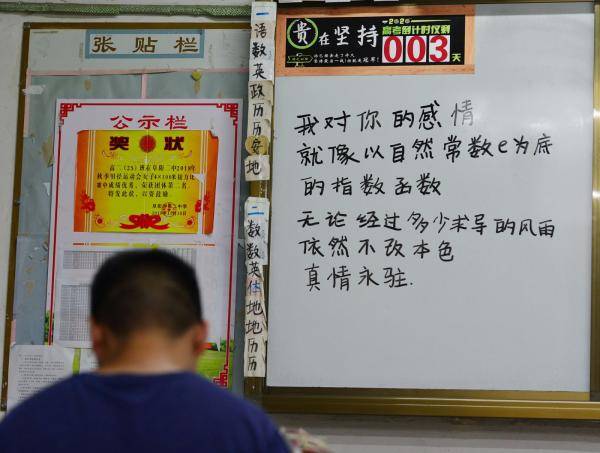 张贴栏
公示栏
奖状
高二（25）班在阜阳二中2019年
秋季田径运动会女子4×100米接力比
赛中成绩优秀，荣获团体第二名，
特发此状，以资鼓励。
一
语
数
英
政
历
历
地
一
数
数
英
体
地
地
历
历
贵在坚持
2020
高考倒计时仅剩
003天
我对你的感情
就像以自然常数e为底
的指数函数
无论经过多少求导的风雨
依然不改本色
真情永驻.